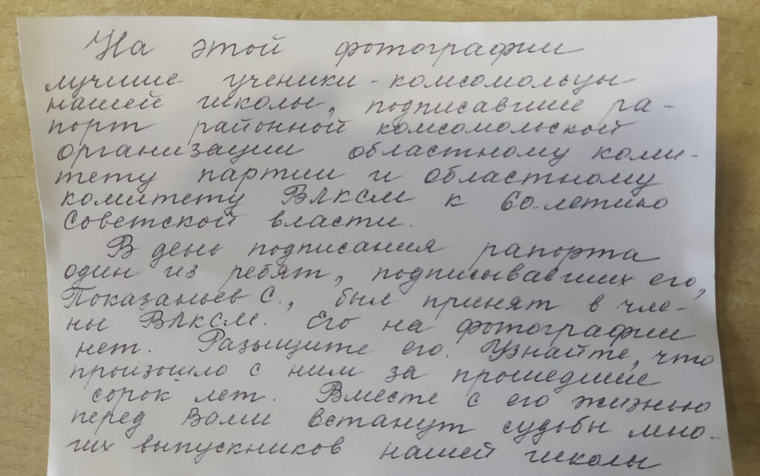 На этой фотографии
лучшие ученики-комсомольцы
нашей школы, подписавшие ра-
порт районной комсомольской
организации областному коми-
тету партии и областному
комитету ВЛКСМ к 60-летию
советской власти.
В день подписания рапорта
один из ребят, подписывавших его,
Показаньев С., был принят в чле-
ны ВЛКСМ. Его на фотографии
нет. Разыщите его. Узнайте, что
произошло с ним за прошедшие
сорок лет. Вместе с его жизнью
перед Вами встанут судьбы мно-
гих выпускников нашей школы